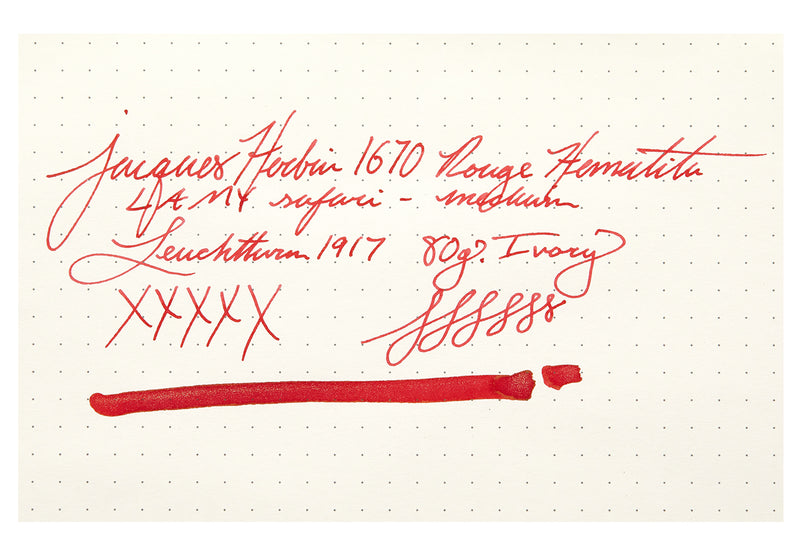 Jacques Herbin 1670 Rouge Hematite
LAMY safari - medium
Leuchtturm 1917 80g. Ivory
XXXXX